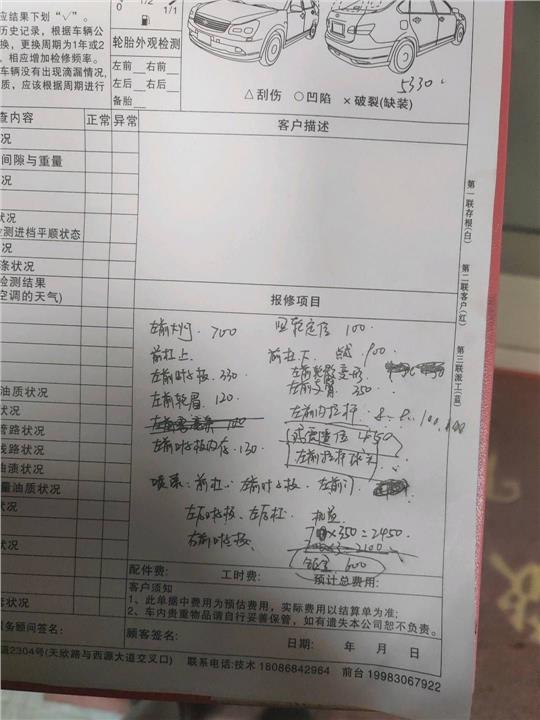 应结果下划“√”。
历史记录，根据车辆公
换，更换周期为1年或2
，相应增加检修频率。
车辆没有出现滴漏情况，
质，应该根据周期进行
0 1/2 1/1
轮胎外观检测
左前 右前
左后 右后
备胎
5330
△刮伤 ○凹陷 ×破裂(缺装)
查内容 正常 异常
客户描述
况
间隙与重量
况
状况
检测进档平顺状态
况
涤状况
检测结果
空调的天气)
油质状况
状况
管路状况
线路状况
油渍状况
量油质状况
状况
状况
态状况
第一联存根(白)
第二联客户(红)
第三联派工(蓝)
报修项目
左前大灯 700 四轮定位 100
前杠上 前杠下 900
左前叶子板 330 左前轮毂变形
左前轮眉 120 左前支臂 350
左前 100 左前内拉杆
左前叶子板内衬 130 450
左前拉杆球头
喷漆：前杠 左前叶子板 左前门
左后叶子板 左后杠
右前叶子板 ×350=2450
2100
600
配件费： 工时费： 预计总费用：
客户须知
1、此单据中费用为预估费用，实际费用以结算单为准；
2、车内贵重物品请自行妥善保管，如有遗失本公司恕不负责。
服务顾问签名： 顾客签名： 日期： 年 月 日
道2304号(天欣路与西源大道交叉口) 联系电话:技术 18086842964 前台 19983067922